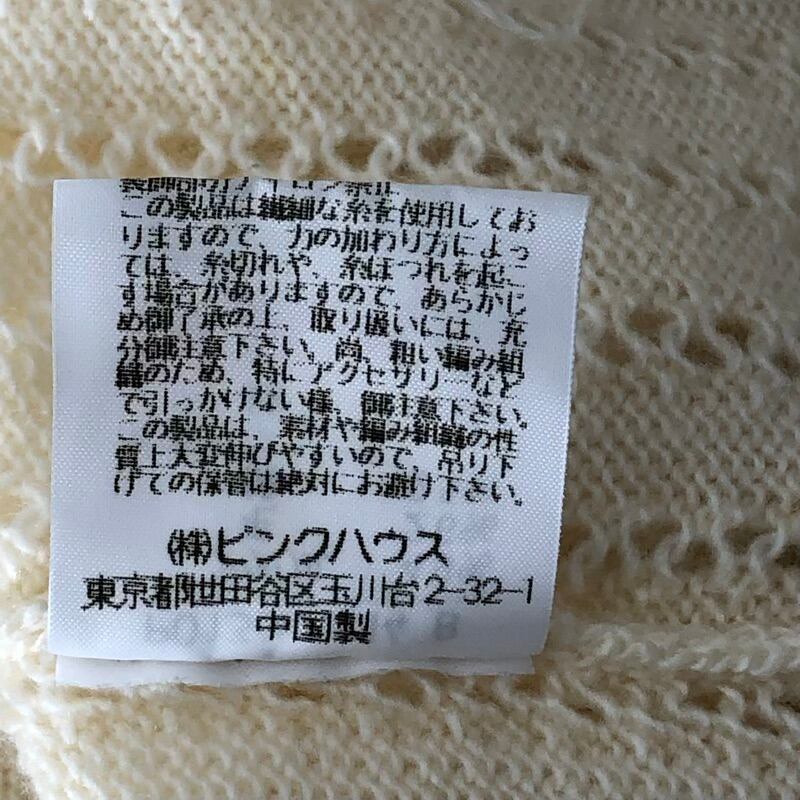 装飾部分アイロン禁止
この製品は繊細な糸を使用してお
りますので、力の加わり方によっ
ては、糸切れや、糸ほつれを起こ
す場合がありますので、あらかじ
め御了承の上、取り扱いには、充
分御注意下さい。尚、粗い編み組
織のため、特にアクセサリーなど
で引っかけない様、御注意下さい。
この製品は、素材や編み組織の性
質上大変伸びやすいので、吊り下
げての保管は絶対にお避け下さい。
(株)ピンクハウス
東京都世田谷区玉川台2-32-1
中国製